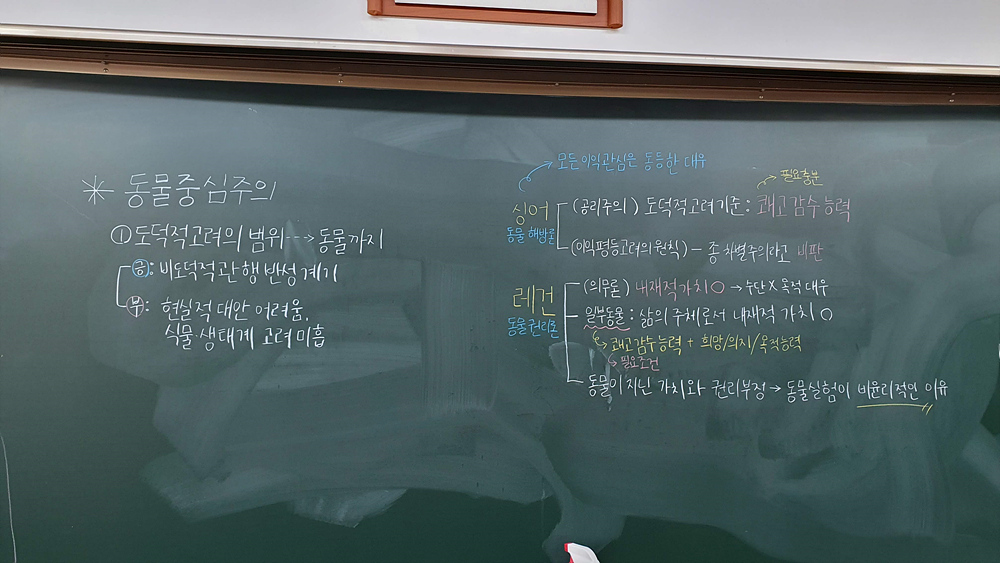 * 동물중심주의
① 도덕적고려의 범위 ---> 동물까지
긍: 비도덕적관행 반성 계기
부: 현실적 대안 어려움,
식물·생태계 고려 미흡
모든 이익관심은 동등한 대우
필요충분
싱어 (공리주의) 도덕적고려기준: 쾌고감수능력
동물 해방론
(이익평등고려의 원칙) - 종 차별주의라고 비판
레건 (의무론) 내재적가치○ → 수단X 목적 대우
동물권리론 일부동물: 삶의 주체로서 내재적 가치 ○
↳ 쾌고감수능력 + 희망/의지/목적능력
↳ 필요조건
동물이 지닌 가치와 권리부정 → 동물실험이 비윤리적인 이유